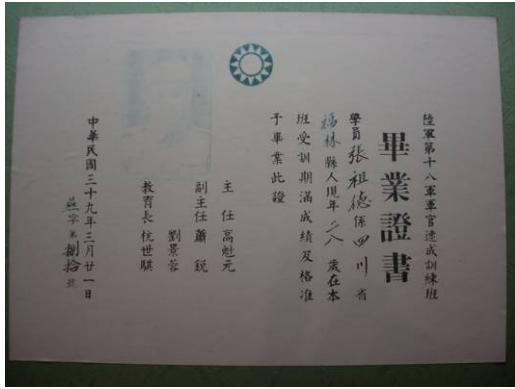 陸軍第十八軍軍官速成訓練班
畢業證書
學員張祖德係四川省
縣人現年二八歲在本
班受訓期滿成績及格准
予畢業此證
主任高魁元
副主任蕭銳
劉景蓉
教育長杭世騏
中華民國三十九年三月廿一日
字第捌拾號